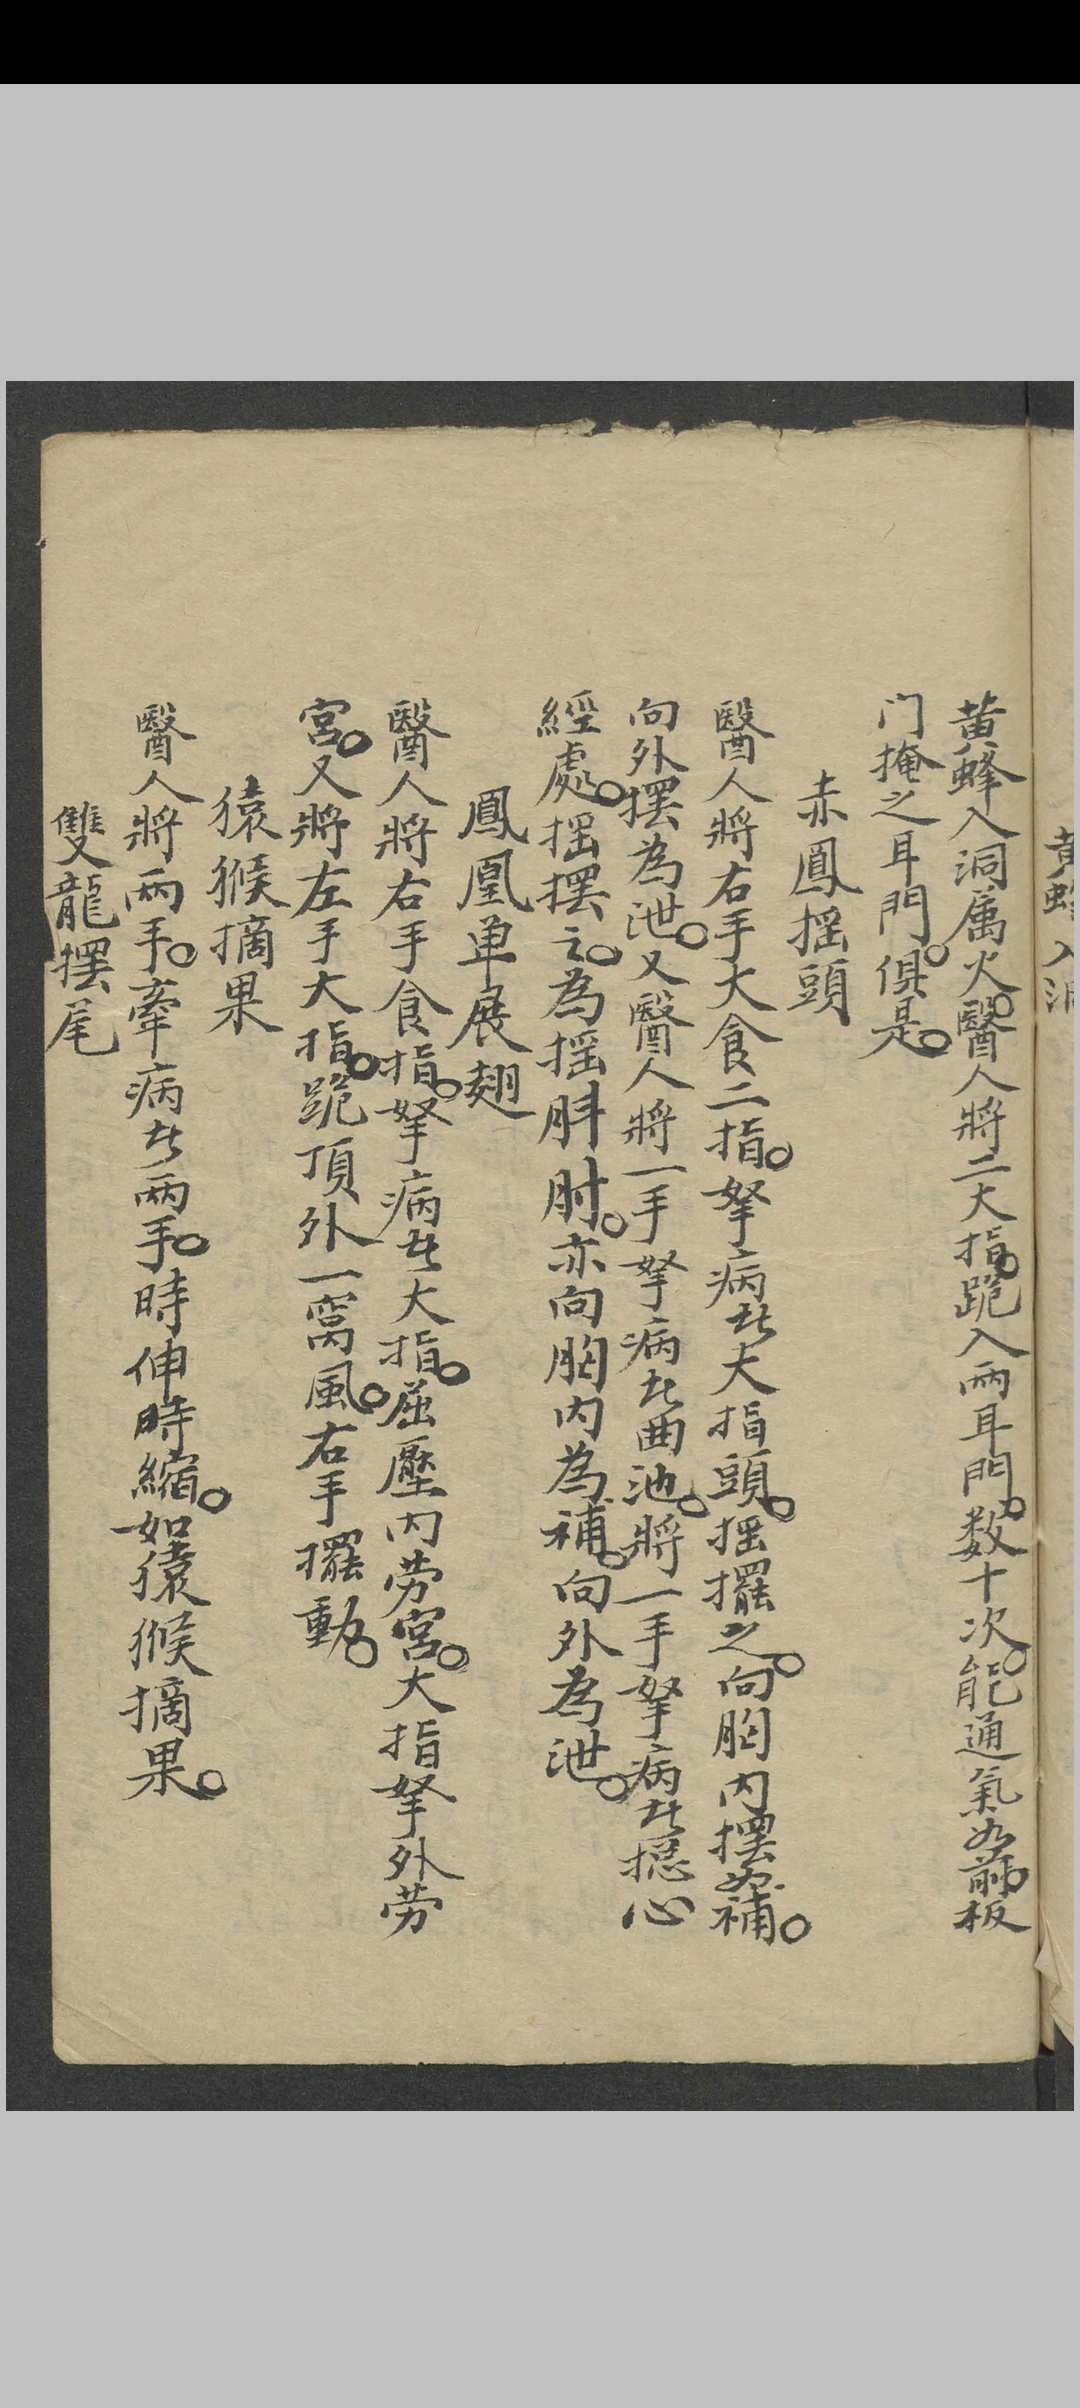 黄蜂入洞
黄蜂入洞属火。醫人將二大指。跪入兩耳門。数十次。能通氣如前。板
门掩之耳門。俱是。
赤鳳摇頭
醫人將右手大食二指。拏病者大指頭。摇擺之。向胸内摆為補。
向外摆為泄。又醫人將一手拏病者曲池。將一手拏病者揔心
經處。摇摆之。為摇䏔肘。亦向胸内為補。向外為泄。
鳳凰单展翅
醫人將右手食指。拏病者大指。屈壓内劳宮。大指拏外劳
宮。又將左手大指。跪頂外一窩風。右手擺動。
猿猴摘果
醫人將兩手。牽病者兩手。時伸時縮。如猿猴摘果。
雙龍摆尾